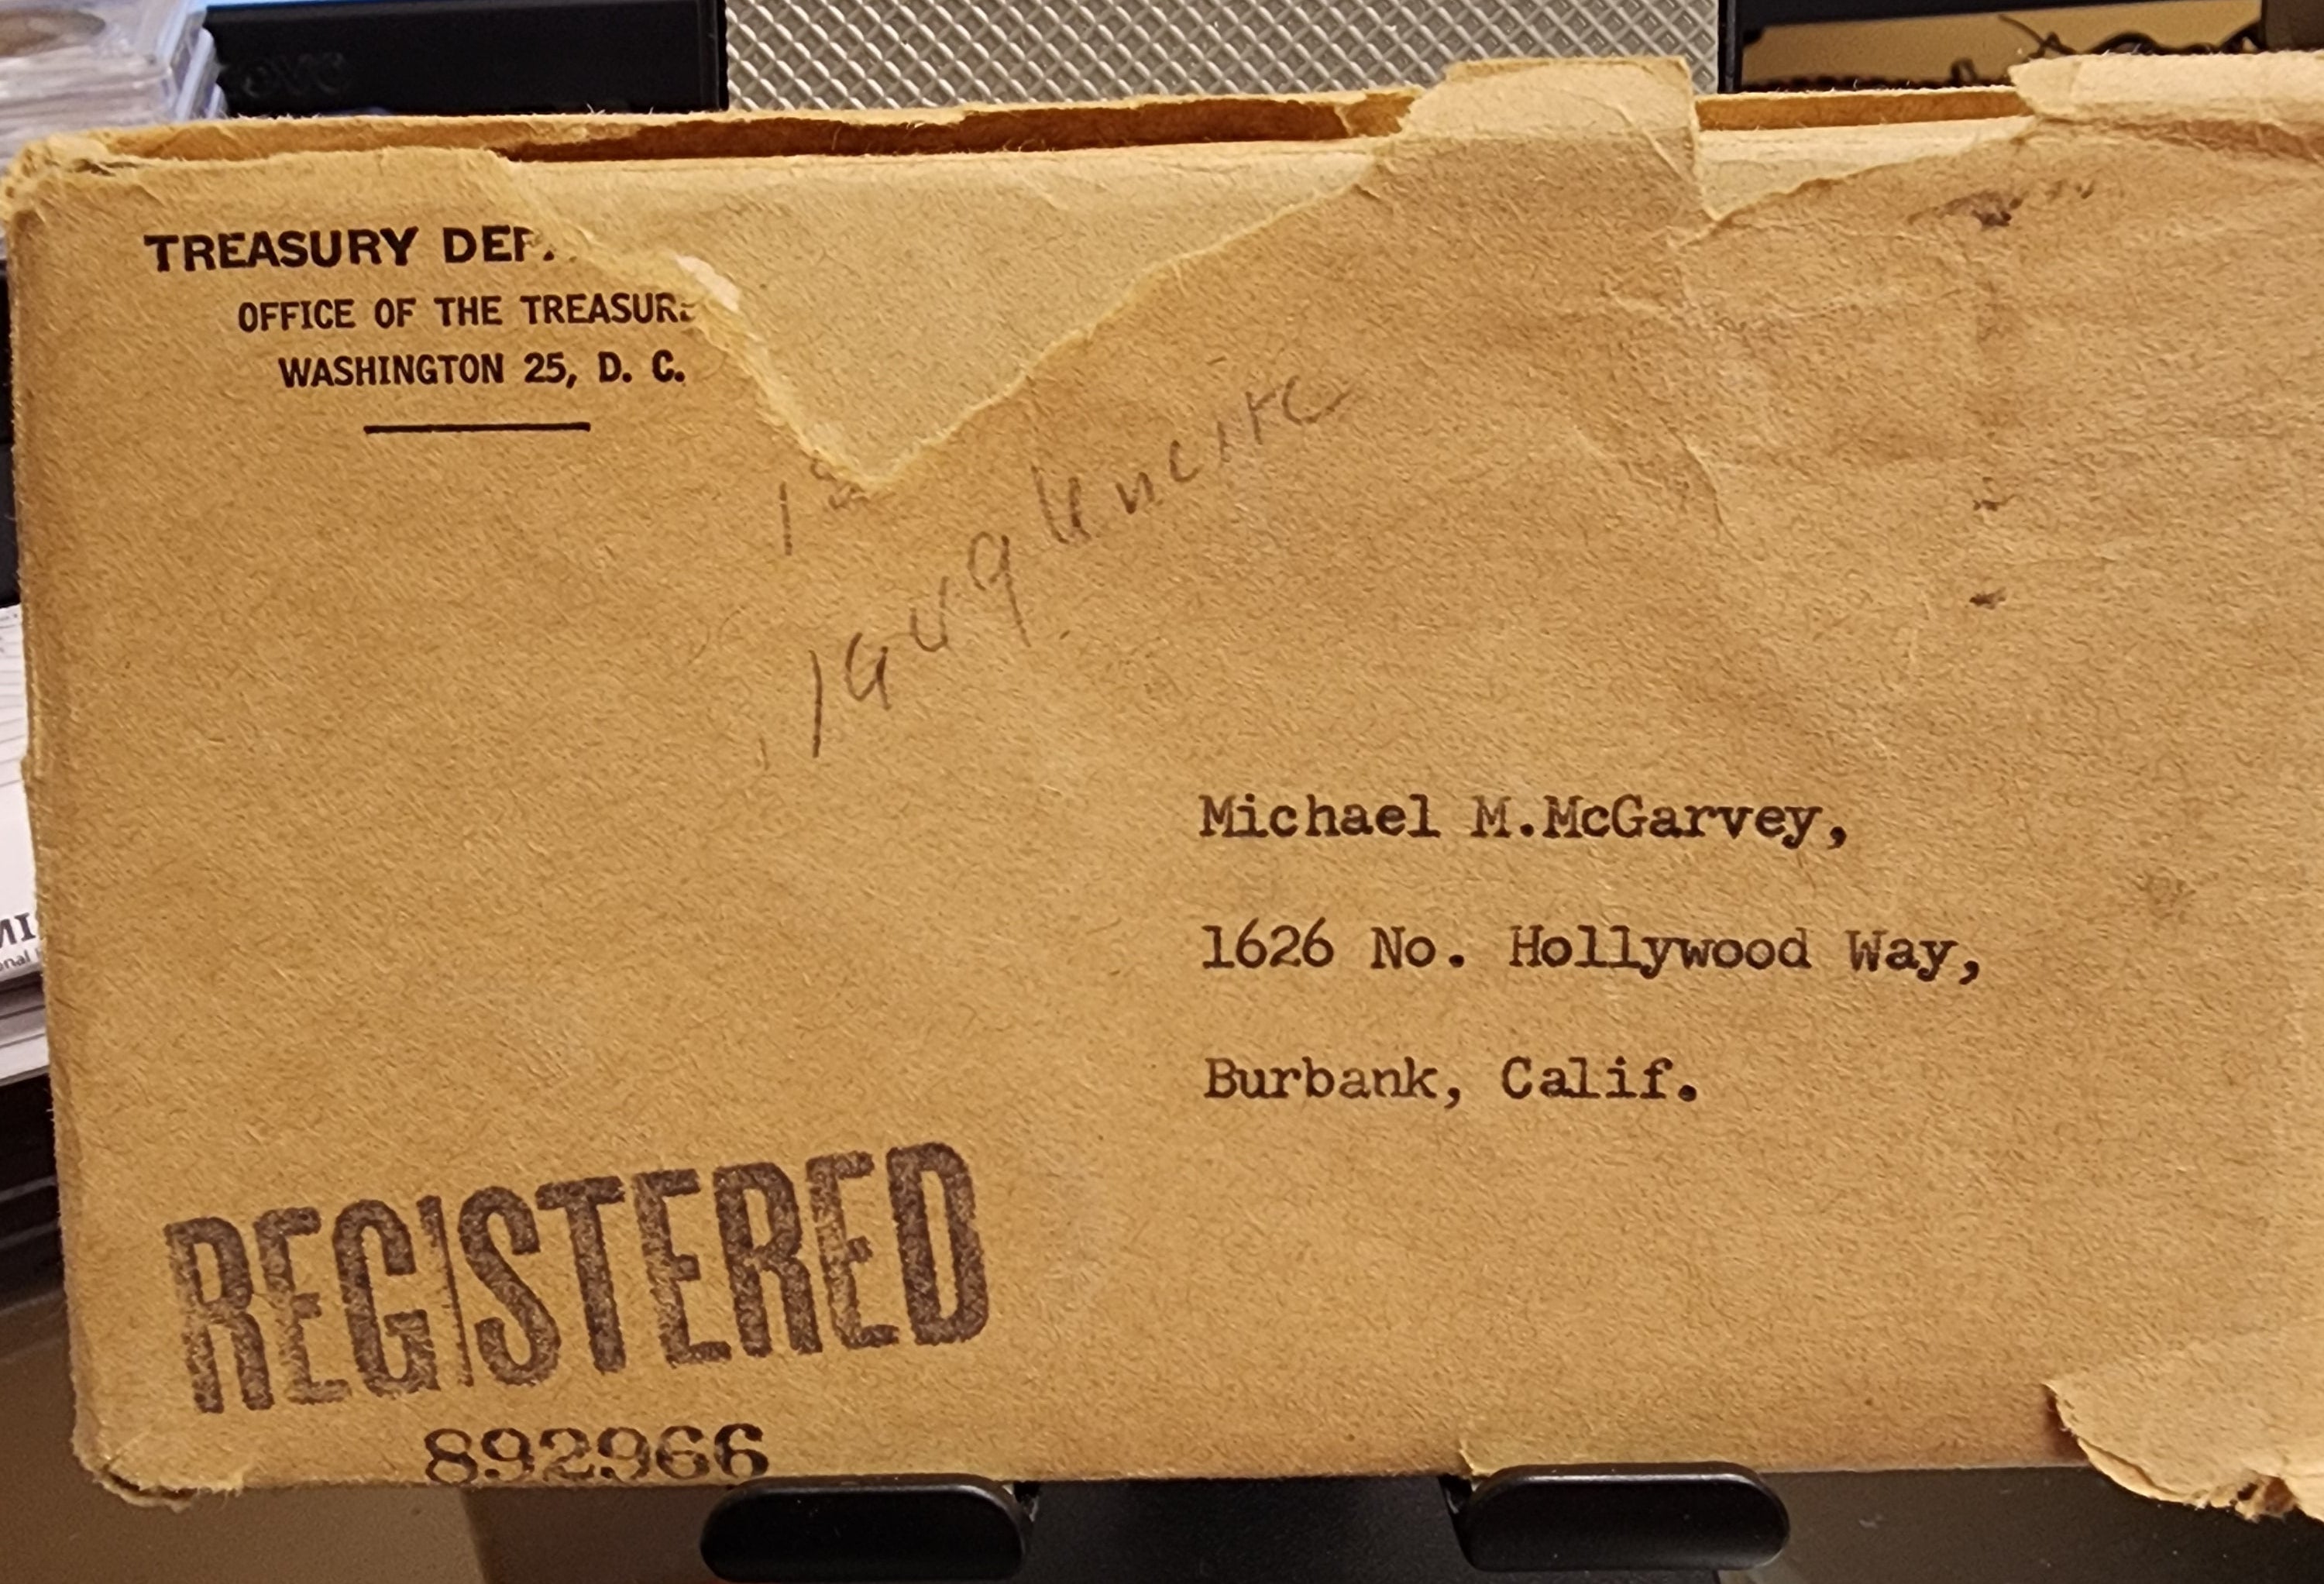 TREASURY DEP
OFFICE OF THE TREASURE
WASHINGTON 25, D. C.
1949 uncirc
Michael M.McGarvey,
1626 No. Hollywood Way,
Burbank, Calif.
REGISTERED
892966